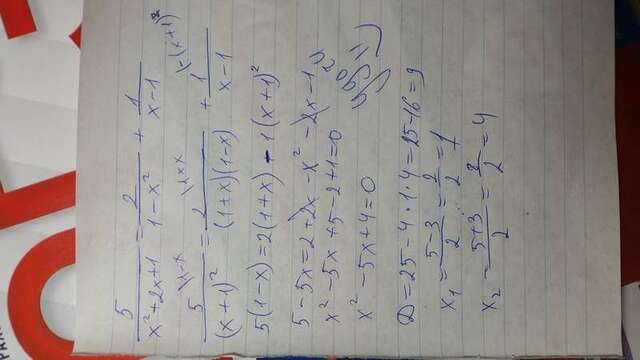 5/(x²+2x+1) = 2/(1-x²) + 1/(x-1)
5/(x+1)² = 2/((1+x)(1-x)) + 1/(x-1)
5(1-x)=2(1+x) - 1(x+1)²
5-5x=2+2x-x²-2x-1
x²-5x+5-2+1=0
x²-5x+4=0
D=25-4·1·4=25-16=9
x₁=(5-3)/2=2/2=1
x₂=(5+3)/2=8/2=4